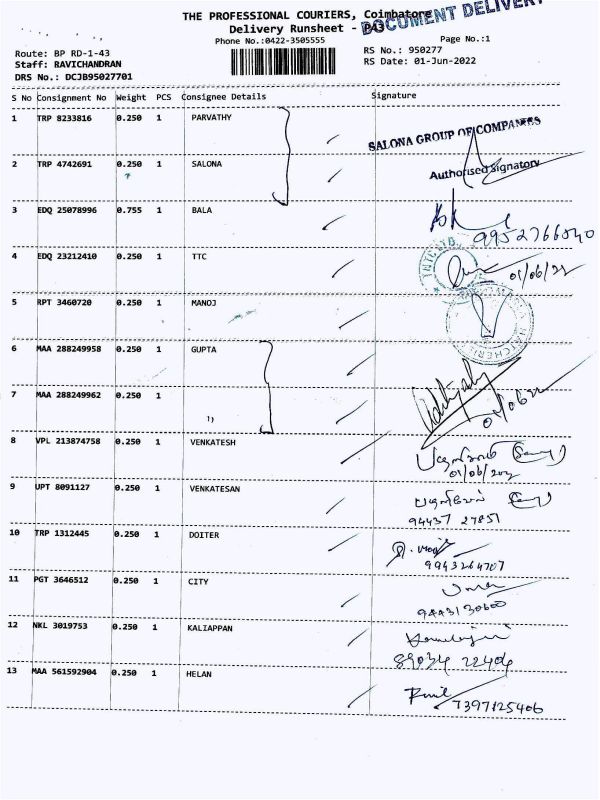 THE PROFESSIONAL COURIERS, Coimbatore
DOCUMENT DELIVERY
Delivery Runsheet - DA3
Phone No.:0422-3505555
Page No.:1
Route: BP RD-1-43
RS No.: 950277
Staff: RAVICHANDRAN
RS Date: 01-Jun-2022
DRS No.: DCJB95027701
S No Consignment No Weight PCS Consignee Details Signature
1 TRP 8233816 0.250 1 PARVATHY
SALONA GROUP OF COMPANIES
2 TRP 4742691 0.250 1 SALONA
Authorised Signatory
3 EDQ 25078996 0.755 1 BALA
9952766040
4 EDQ 23212410 0.250 1 TTC
01/06/22
5 RPT 3460720 0.250 1 MANOJ
6 MAA 288249958 0.250 1 GUPTA
7 MAA 288249962 0.250 1
8 VPL 213874758 0.250 1 VENKATESH
01/06/2022
9 UPT 8091127 0.250 1 VENKATESAN
94437 27851
10 TRP 1312445 0.250 1 DOITER
9943264707
11 PGT 3646512 0.250 1 CITY
9443130600
12 NKL 3019753 0.250 1 KALIAPPAN
89034 22404
13 MAA 561592904 0.250 1 HELAN
7397125406